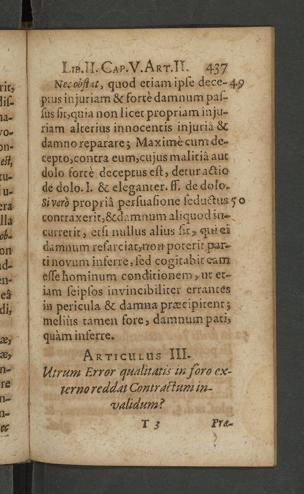 LIB. II. CAP. V. ART. II. 437
Nec obstat, quod etiam ipse dece- 49
ptus injuriam & fortè damnum pas-
sus sit, quia non licet propriam inju-
riam alterius innocentis injuriâ &
damno reparare; Maximè cum de-
cepto, contra eum, cujus malitiâ aut
dolo fortè deceptus est, detur actio
de dolo. l. & eleganter. ff. de dolo.
Si verò propriâ persuasione seductus 50
contraxerit, & damnum aliquod in-
currerit, etsi nullus alius sit, qui ei
damnum resarciat, non poterit par-
ti novum inferre, sed cogitabit eam
esse hominum conditionem, ut et-
iam seipsos invincibiliter errantes
in pericula & damna præcipitent;
melius tamen fore, damnum pati,
quàm inferre.
ARTICULUS III.
Utrum Error qualitatis in foro ex-
terno reddat Contractum in-
validum?
T 3 Præ-